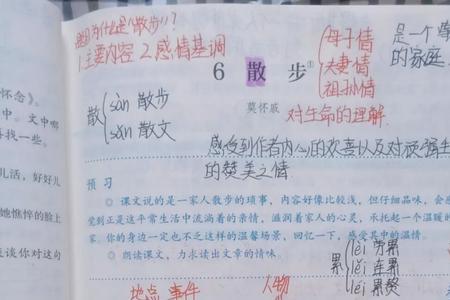 为什么是“散步”?
1.主要内容 2.感情基调
6 散 步①
莫怀戚
母子情
夫妻情
祖孙情
对生命的理解
是一个
的家庭
散
sàn 散步
sǎn 散文
感受到作者内心的欢喜以及对顽强生
的赞美之情
预 习
○ 课文说的是一家人散步的琐事，内容好像比较浅，但仔细品味，会
觉到正是这平常生活中流淌着的亲情，滋润着家人的心灵，承托起一个温暖的
家。你的身边一定也不乏这样的温馨场景，回忆一下，感受其中的温情。
○ 朗读课文，力求读出文章的情味。
累
lèi 劳累
lěi 连累
地点 事件 人物
怀念》。
中。文中哪
寻找一些。
儿活，好好儿
她憔悴的脸上
谈你对这句